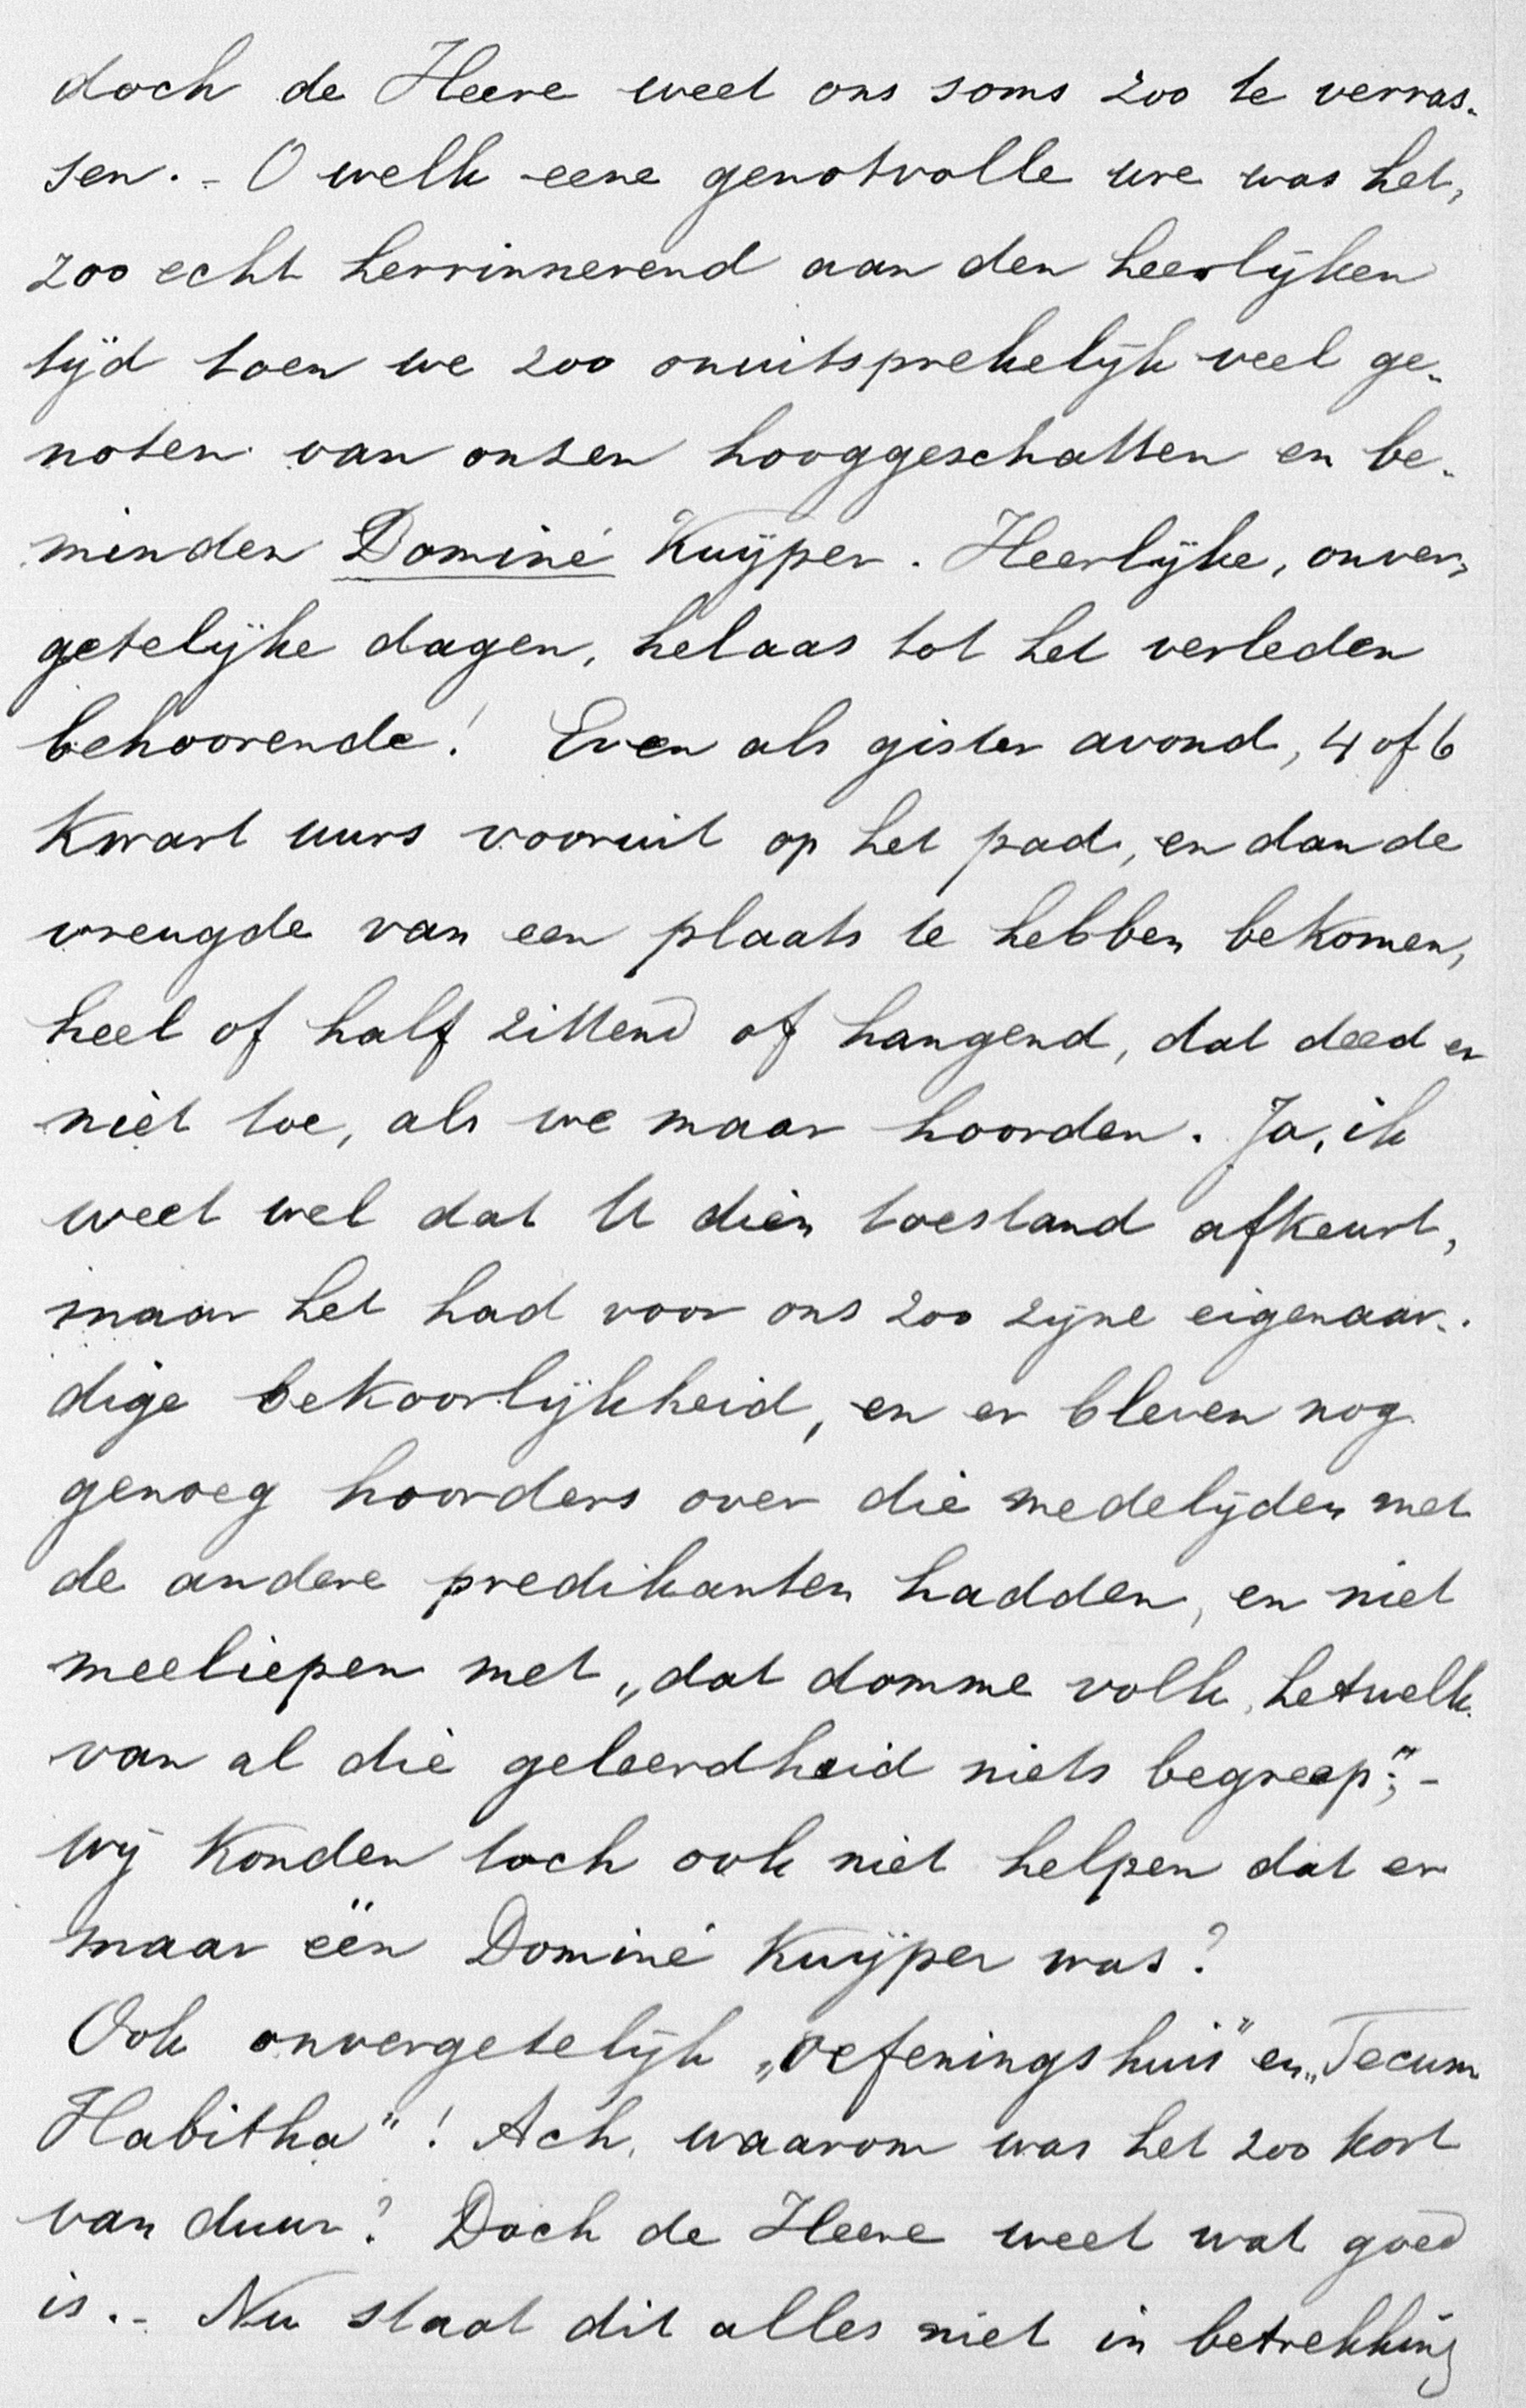 doch de Heere weet ons soms zoo te verras-
sen. - O welk eene genotvolle ure was het,
zoo echt herrinnerend aan den heerlijken
tijd toen we zoo onuitsprekelijk veel ge-
noten van onzen hooggeschatten en be-
minden Dominé Kuijper. Heerlijke, onver-
getelijke dagen, helaas tot het verleden
behoorende! Even als gister avond, 4 of 6
Kwart uurs vooruit op het pad, en dan de
vreugde van een plaats te hebben bekomen,
heel of half zittend of hangend, dat deed er
niet toe, als we maar hoorden. Ja, ik
weet wel dat U dien toestand afkeurt,
maar het had voor ons zoo zijne eigenaar-
dige bekoorlijkheid, en er bleven nog
genoeg hoorders over die medelijden met
de andere predikanten hadden, en niet
meeliepen met „dat domme volk, hetwelk
van al die geleerdheid niets begreep"; -
wij konden toch ook niet helpen dat er
maar één Dominé Kuijper was?
Ook onvergetelijk „oefeningshuis" en „Tecum
Habitha"! Ach, waarom was het zoo kort
van duur? Doch de Heere weet wat goed
is. - Nu staat dit alles niet in betrekking